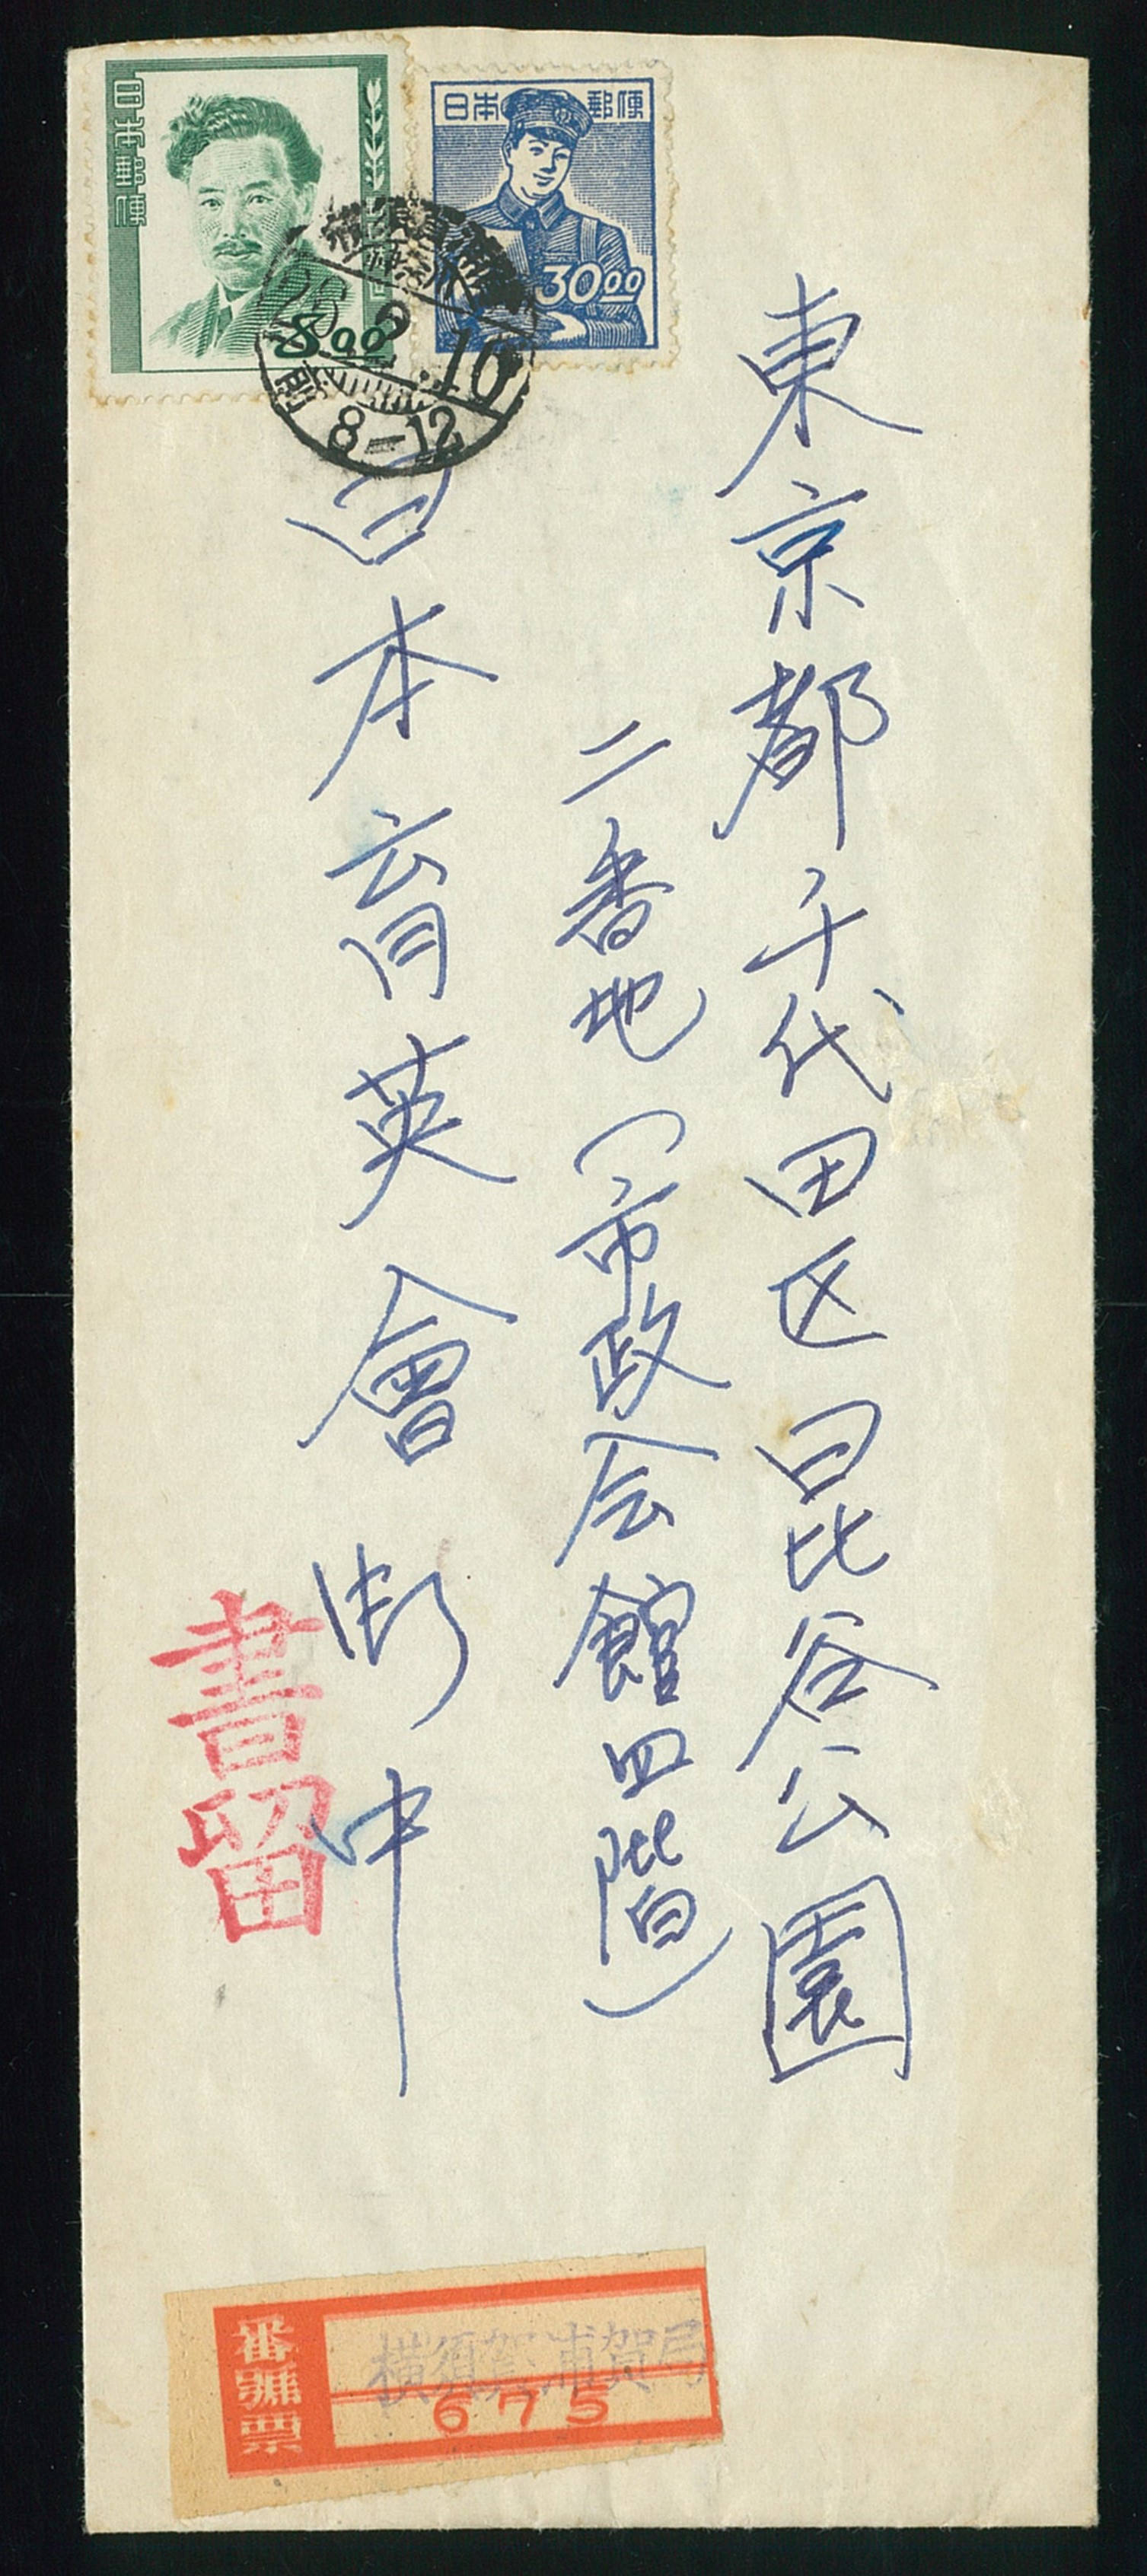 東京都千代田区日比谷公園
二番地(市政会館四階)
日本育英會御中
日本郵便
8.00
日本郵便
30.00
.10
8-12
書留
番號票
横須賀浦賀局
675